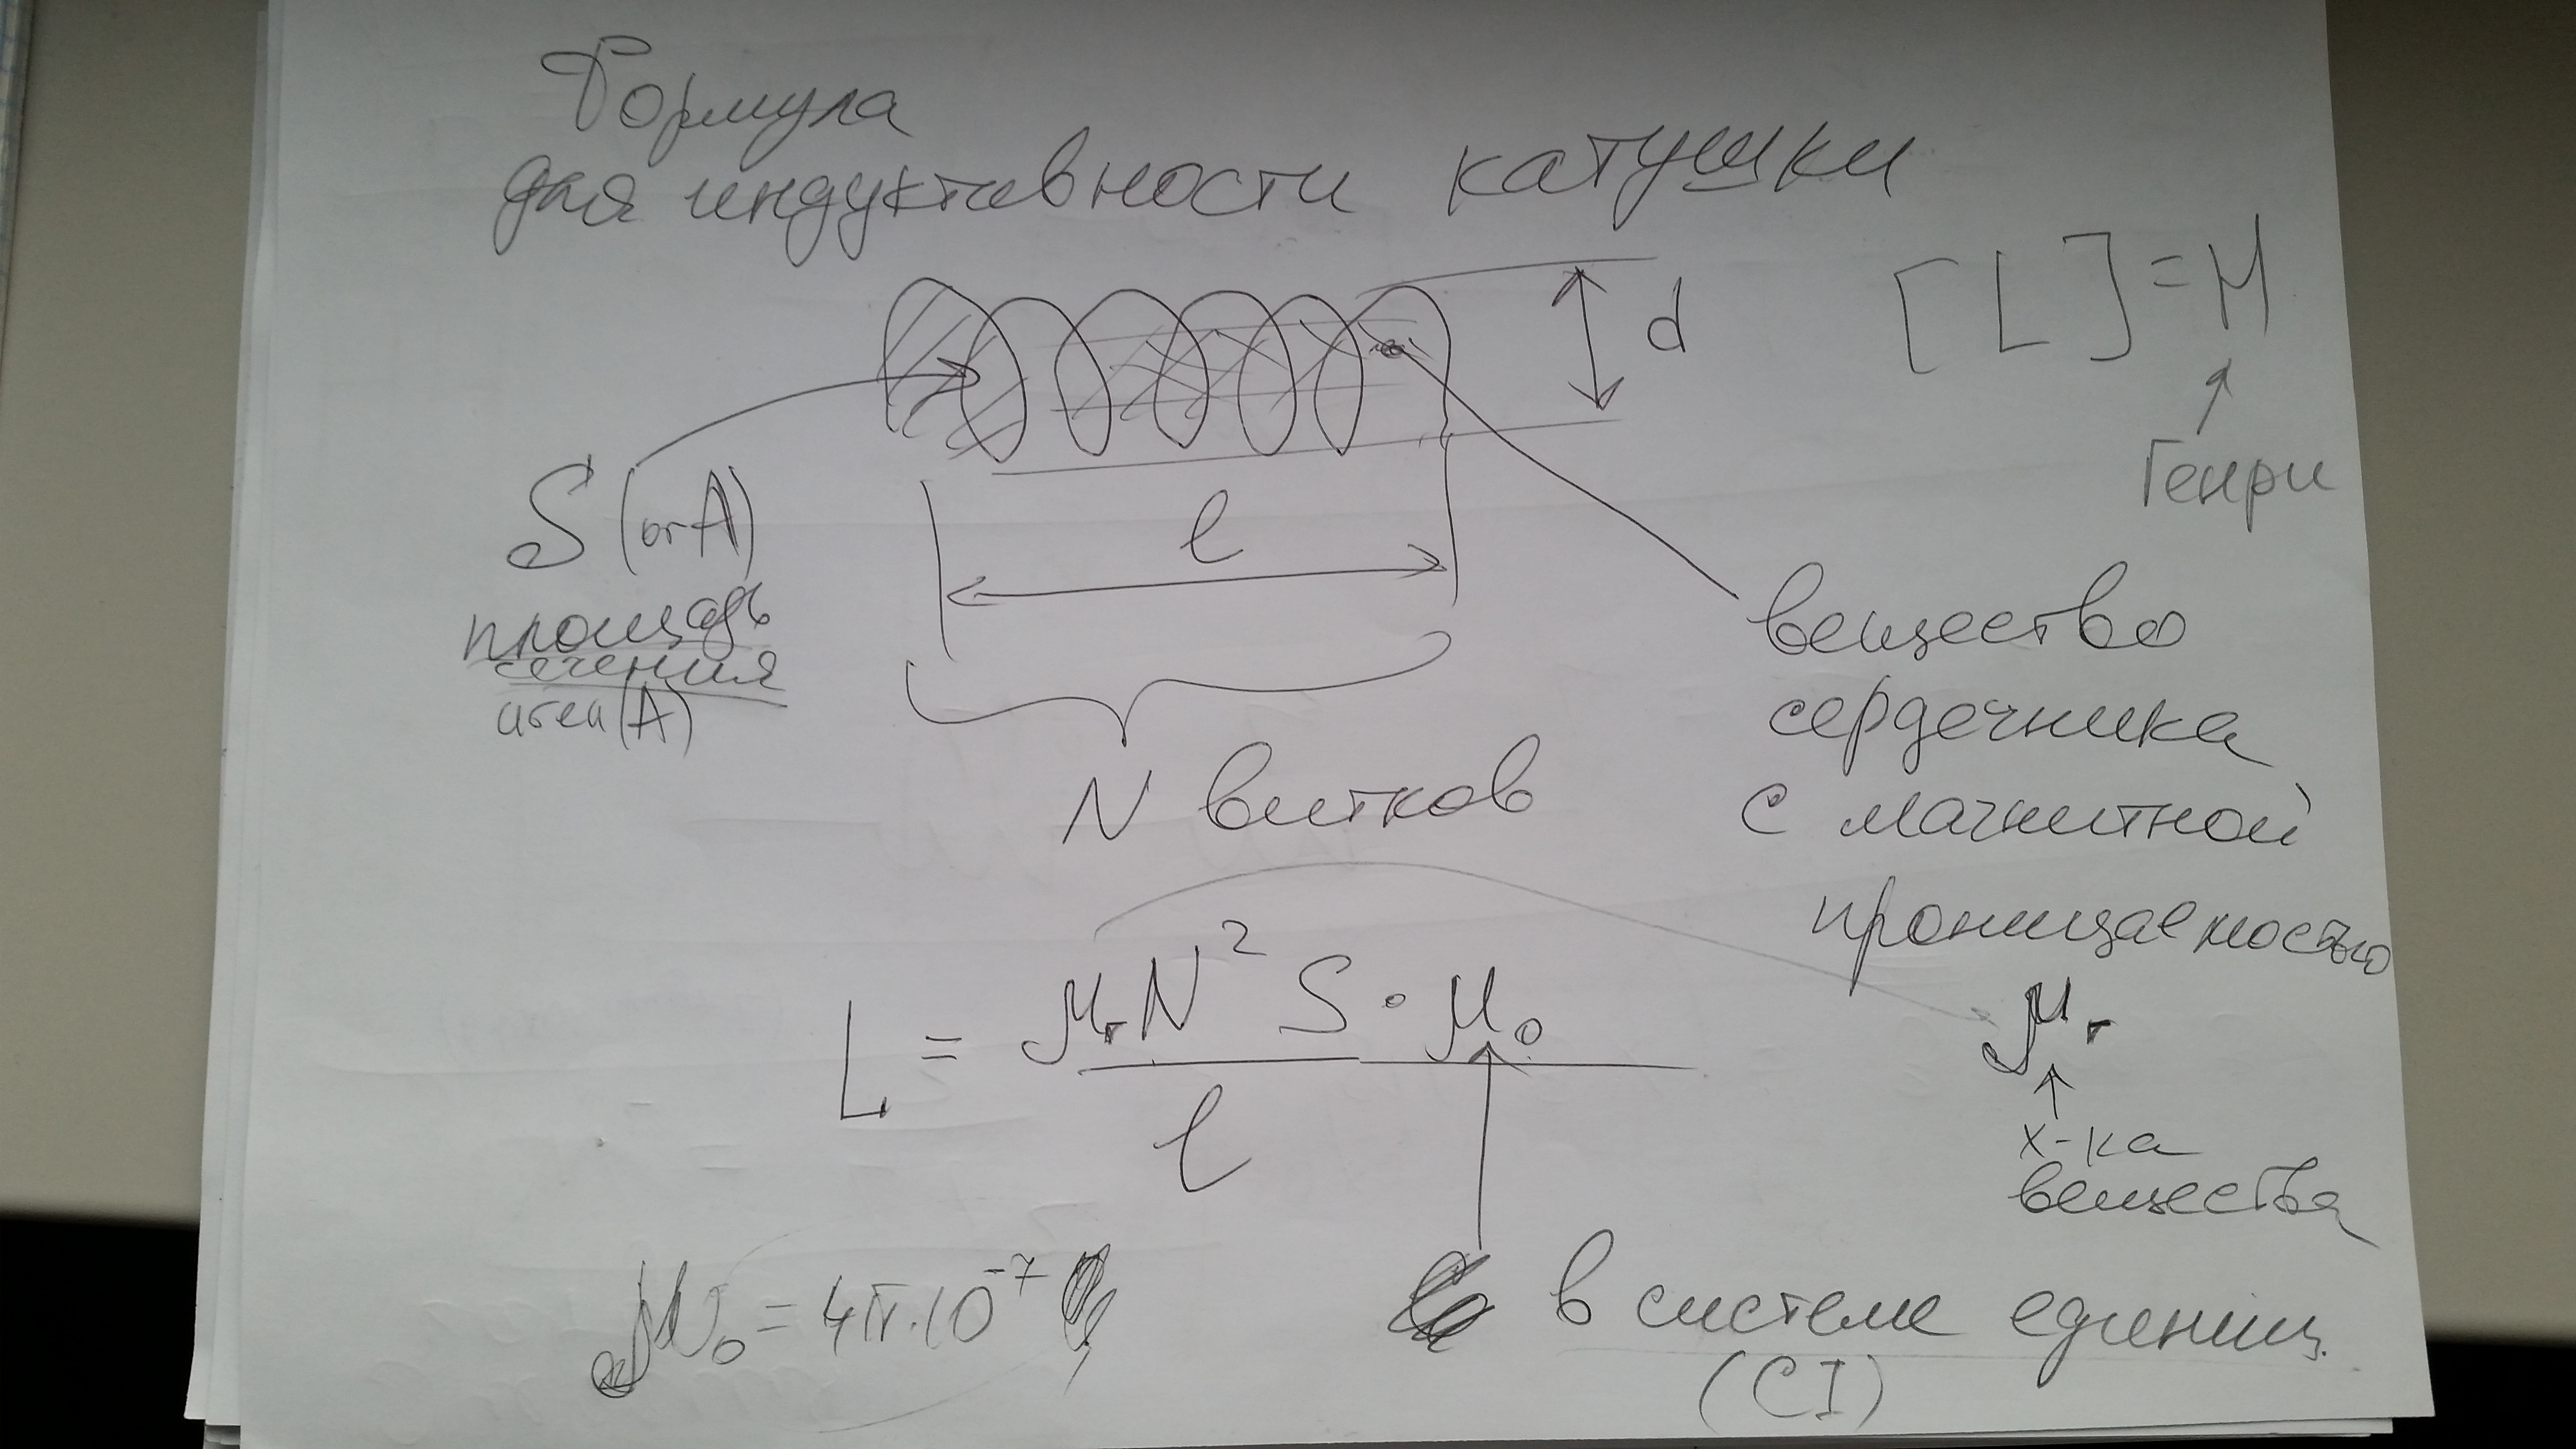 Формула
для индуктивности катушки
[L] = H
Генри
d
S (or A)
площадь
сечения
l
N витков
вещество
сердечника
с магнитной
проницаемостью
μr
х-ка
вещества
L = μr N² S · μ0
l
μ0 = 4π·10⁻⁷
в системе единиц
(СI)